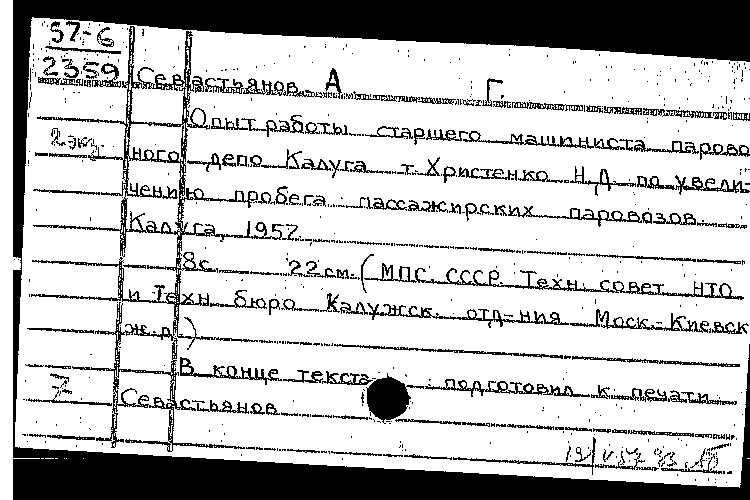 57-6
2359
Севастьянов. А Г.
Опыт работы старшего машиниста парово
2 экз
ного депо Калуга т. Христенко Н.Д. по увели-
чению пробега пассажирских паровозов.
Калуга, 1957.
8с. 22 см. (МПС. СССР. Техн. совет НТО
и Техн. бюро Калужск. отд-ния Моск.-Киевск
ж.д.)
В конце текста: подготовил к печати
7 Севастьянов
19/V 57